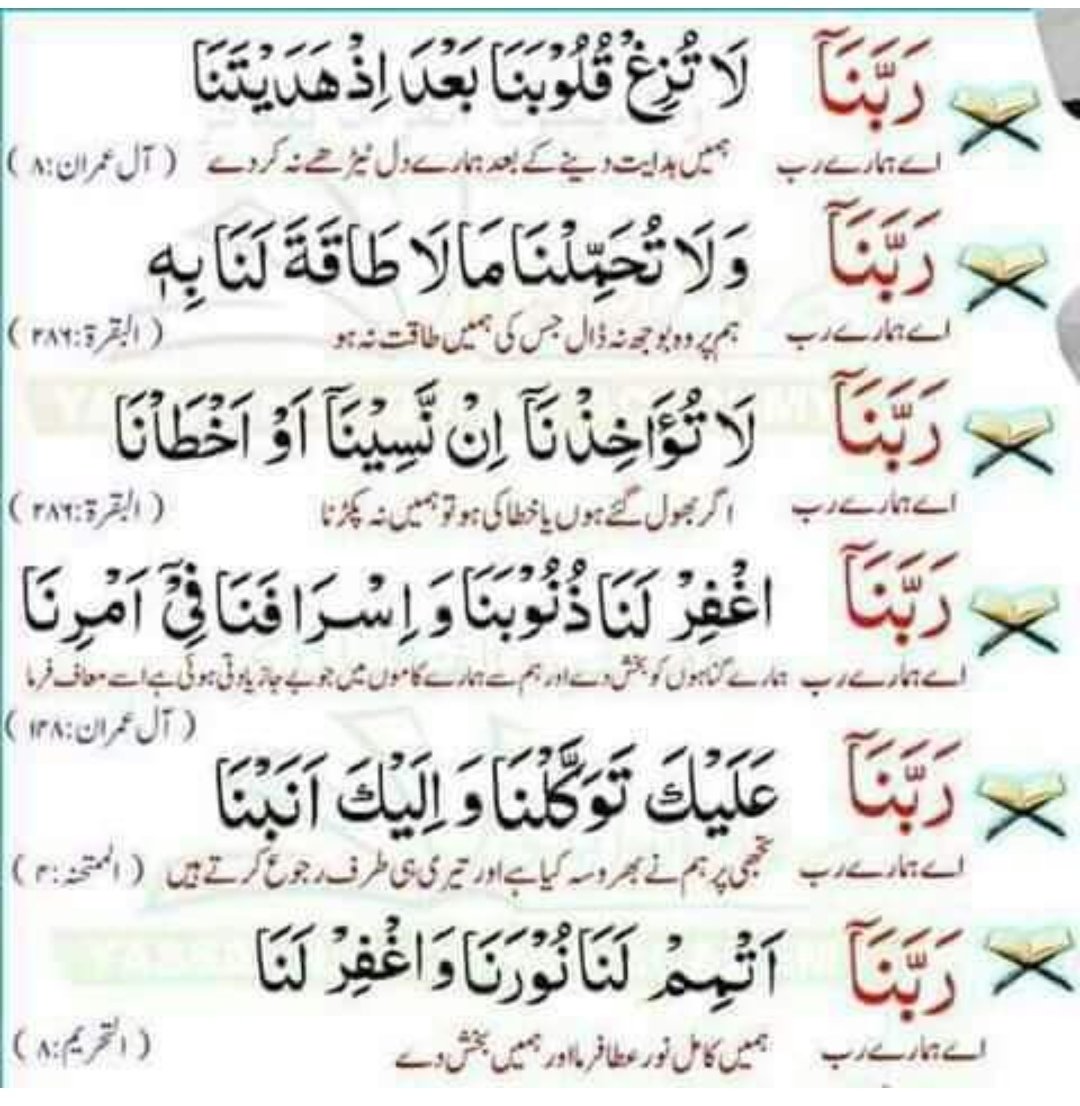 رَبَّنَآ لَا تُزِغْ قُلُوْبَنَا بَعْدَ اِذْ هَدَيْتَنَا
اے ہمارے رب ہمیں ہدایت دینے کے بعد ہمارے دل ٹیڑھے نہ کر دے ( آل عمران:۸ )
رَبَّنَآ وَلَا تُحَمِّلْنَا مَا لَا طَاقَةَ لَنَا بِهٖ
اے ہمارے رب ہم پر وہ بوجھ نہ ڈال جس کی ہمیں طاقت نہ ہو ( البقرة:۲۸۶ )
رَبَّنَآ لَا تُؤَاخِذْنَآ اِنْ نَّسِيْنَآ اَوْ اَخْطَاْنَا
اے ہمارے رب اگر بھول گئے ہوں یا خطا کی ہو تو ہمیں نہ پکڑنا ( البقرة:۲۸۶ )
رَبَّنَآ اغْفِرْ لَنَا ذُنُوْبَنَا وَ اِسْرَافَنَا فِيْٓ اَمْرِنَا
اے ہمارے رب ہمارے گناہوں کو بخش دے اور ہم سے ہمارے کاموں میں جو بے جا زیادتی ہوئی ہے اسے معاف فرما
( آل عمران:۱۴۸ )
رَبَّنَآ عَلَيْكَ تَوَكَّلْنَا وَ اِلَيْكَ اَنَبْنَا
اے ہمارے رب تجھی پر ہم نے بھروسہ کیا ہے اور تیری ہی طرف رجوع کرتے ہیں ( الممتحنہ:۴ )
رَبَّنَآ اَتْمِمْ لَنَا نُوْرَنَا وَاغْفِرْ لَنَا
اے ہمارے رب ہمیں کامل نور عطا فرما اور ہمیں بخش دے ( التحریم:۸ )